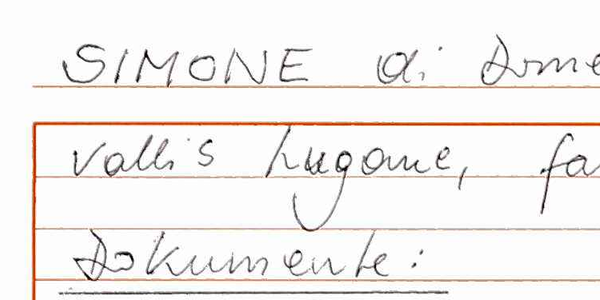 SIMONE di
vallis Lugane,
Dokumente: